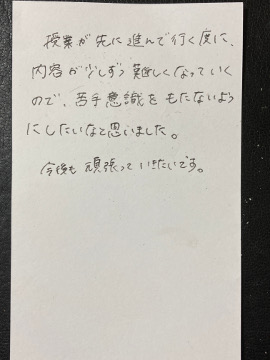 授業が先に進んで行く度に、
内容が少しずつ難しくなっていく
ので、苦手意識をもたないよう
にしたいなと思いました。
今後も頑張っていきたいです。